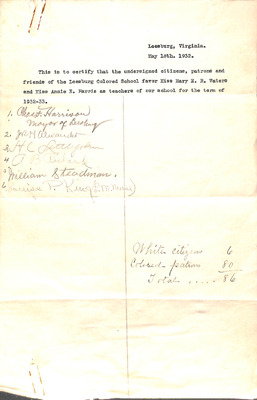 Leesburg, Virginia.
May 18th. 1932.
This is to certify that the undersigned citizens, patrons and
friends of the Leesburg Colored School favor Miss Mary E. R. Waters
and Miss Annie E. Harris as teachers of our school for the term of
1932-33.
1. Chas F. Harrison
Mayor of Leesburg
2. Jno M Alexander
3 H C
4
5 William Steadman.
6 P. King
White citizens 6
Colored patrons 80
Total ..... 86